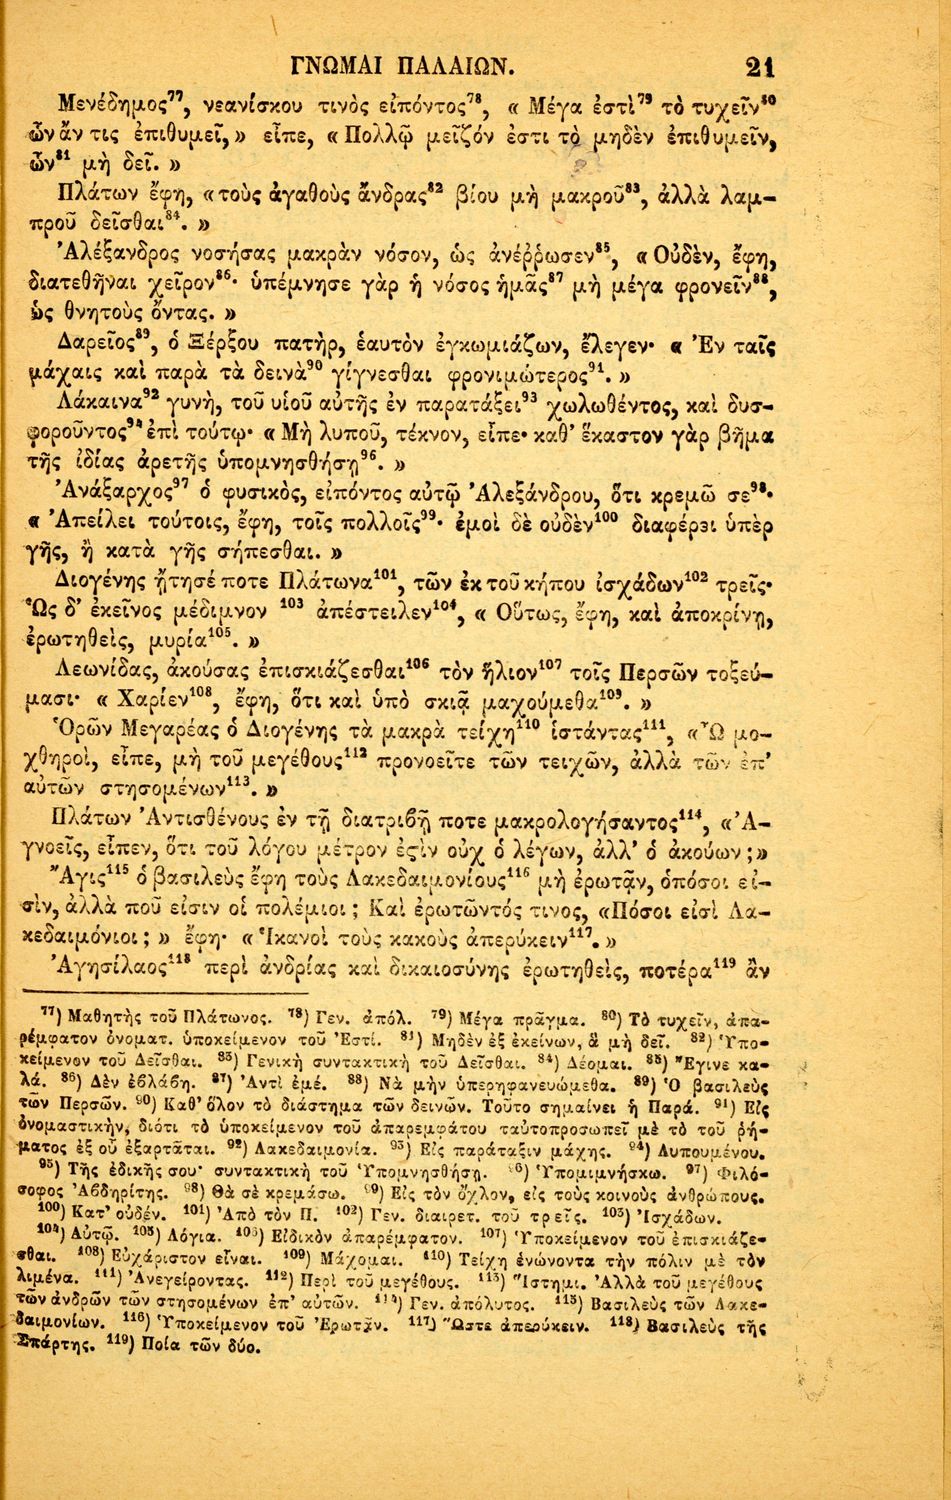 ΓΝΩΜΑΙ ΠΑΛΑΙΩΝ. 21
Μενέδημος⁷⁷, νεανίσκου τινὸς εἰπόντος⁷⁸, « Μέγα ἐστὶ⁷⁹ τὸ τυχεῖν⁸⁰
ὧν ἄν τις ἐπιθυμεῖ, » εἶπε, « Πολλῷ μεῖζόν ἐστι τὸ μηδὲν ἐπιθυμεῖν,
ὧν⁸¹ μὴ δεῖ. »
Πλάτων ἔφη, « τοὺς ἀγαθοὺς ἄνδρας⁸² βίου μὴ μακροῦ⁸³, ἀλλὰ λαμ-
προῦ δεῖσθαι⁸⁴. »
Ἀλέξανδρος νοσήσας μακρὰν νόσον, ὡς ἀνέῤῥωσεν⁸⁵, « Οὐδὲν, ἔφη,
διατεθῆναι χεῖρον⁸⁶· ὑπέμνησε γὰρ ἡ νόσος ἡμᾶς⁸⁷ μὴ μέγα φρονεῖν⁸⁸,
ὡς θνητοὺς ὄντας. »
Δαρεῖος⁸⁹, ὁ Ξέρξου πατὴρ, ἑαυτὸν ἐγκωμιάζων, ἔλεγεν· « Ἐν ταῖς
μάχαις καὶ παρὰ τὰ δεινὰ⁹⁰ γίγνεσθαι φρονιμώτερος⁹¹. »
Λάκαινα⁹² γυνὴ, τοῦ υἱοῦ αὐτῆς ἐν παρατάξει⁹³ χωλωθέντος, καὶ δυσ-
φοροῦντος⁹⁴ ἐπὶ τούτῳ· « Μὴ λυποῦ, τέκνον, εἶπε· καθ' ἕκαστον γὰρ βῆμα
τῆς ἰδίας ἀρετῆς ὑπομνησθήσῃ⁹⁶. »
Ἀνάξαρχος⁹⁷ ὁ φυσικὸς, εἰπόντος αὐτῷ Ἀλεξάνδρου, ὅτι κρεμῶ σε⁹⁸·
« Ἀπείλει τούτοις, ἔφη, τοῖς πολλοῖς⁹⁹· ἐμοὶ δὲ οὐδὲν¹⁰⁰ διαφέρει ὑπὲρ
γῆς, ἢ κατὰ γῆς σήπεσθαι. »
Διογένης ᾔτησέ ποτε Πλάτωνα¹⁰¹, τῶν ἐκ τοῦ κήπου ἰσχάδων¹⁰² τρεῖς·
Ὡς δ' ἐκεῖνος μέδιμνον ¹⁰³ ἀπέστειλεν¹⁰⁴, « Οὕτως, ἔφη, καὶ ἀποκρίνῃ,
ἐρωτηθεὶς, μυρία¹⁰⁵. »
Λεωνίδας, ἀκούσας ἐπισκιάζεσθαι¹⁰⁶ τὸν ἥλιον¹⁰⁷ τοῖς Περσῶν τοξεύ-
μασι· « Χαρίεν¹⁰⁸, ἔφη, ὅτι καὶ ὑπὸ σκιᾷ μαχούμεθα¹⁰⁹. »
Ὁρῶν Μεγαρέας ὁ Διογένης τὰ μακρὰ τείχη¹¹⁰ ἱστάντας¹¹¹, « Ὦ μο-
χθηροὶ, εἶπε, μὴ τοῦ μεγέθους¹¹² προνοεῖτε τῶν τειχῶν, ἀλλὰ τῶν ἐπ'
αὐτῶν στησομένων¹¹³. »
Πλάτων Ἀντισθένους ἐν τῇ διατριβῇ ποτε μακρολογήσαντος¹¹⁴, « Ἀ-
γνοεῖς, εἶπεν, ὅτι τοῦ λόγου μέτρον ἐςὶν οὐχ ὁ λέγων, ἀλλ' ὁ ἀκούων ;»
Ἄγις¹¹⁵ ὁ βασιλεὺς ἔφη τοὺς Λακεδαιμονίους¹¹⁶ μὴ ἐρωτᾷν, ὁπόσοι εἰ-
σὶν, ἀλλὰ ποῦ εἰσιν οἱ πολέμιοι ; Καὶ ἐρωτῶντός τινος, «Πόσοι εἰσὶ Λα-
κεδαιμόνιοι ; » ἔφη· « Ἱκανοὶ τοὺς κακοὺς ἀπερύκειν¹¹⁷. »
Ἀγησίλαος¹¹⁸ περὶ ἀνδρίας καὶ δικαιοσύνης ἐρωτηθεὶς, ποτέρα¹¹⁹ ἂν
⁷⁷) Μαθητὴς τοῦ Πλάτωνος. ⁷⁸) Γεν. ἀπόλ. ⁷⁹) Μέγα πρᾶγμα. ⁸⁰) Τὸ τυχεῖν, ἀπα-
ρέμφατον ὀνοματ. ὑποκείμενον τοῦ Ἐστί. ⁸¹) Μηδὲν ἐξ ἐκείνων, ἃ μὴ δεῖ. ⁸²) Ὑπο-
κείμενον τοῦ Δεῖσθαι. ⁸³) Γενικὴ συντακτικὴ τοῦ Δεῖσθαι. ⁸⁴) Δέομαι. ⁸⁵) Ἔγινε κα-
λά. ⁸⁶) Δὲν ἐβλάβη. ⁸⁷) Ἀντὶ ἐμέ. ⁸⁸) Νὰ μὴν ὑπερηφανευώμεθα. ⁸⁹) Ὁ βασιλεὺς
τῶν Περσῶν. ⁹⁰) Καθ' ὅλον τὸ διάστημα τῶν δεινῶν. Τοῦτο σημαίνει ἡ Παρά. ⁹¹) Εἰς
ὀνομαστικὴν, διότι τὸ ὑποκείμενον τοῦ ἀπαρεμφάτου ταὐτοπροσωπεῖ μὲ τὸ τοῦ ῥή-
ματος ἐξ οὗ ἐξαρτᾶται. ⁹²) Λακεδαιμονία. ⁹³) Εἰς παράταξιν μάχης. ⁹⁴) Λυπουμένου.
⁹⁵) Τῆς ἐδικῆς σου· συντακτικὴ τοῦ Ὑπομνησθήσῃ. ⁹⁶) Ὑπομιμνήσκω. ⁹⁷) Φιλό-
σοφος Ἀβδηρίτης. ⁹⁸) Θὰ σὲ κρεμάσω. ⁹⁹) Εἰς τὸν ὄχλον, εἰς τοὺς κοινοὺς ἀνθρώπους.
¹⁰⁰) Κατ' οὐδέν. ¹⁰¹) Ἀπὸ τὸν Π. ¹⁰²) Γεν. διαιρετ. τοῦ τρεῖς. ¹⁰³) Ἰσχάδων.
¹⁰⁴) Αὐτῷ. ¹⁰⁵) Λόγια. ¹⁰⁶) Εἰδικὸν ἀπαρέμφατον. ¹⁰⁷) Ὑποκείμενον τοῦ ἐπισκιάζε-
σθαι. ¹⁰⁸) Εὐχάριστον εἶναι. ¹⁰⁹) Μάχομαι. ¹¹⁰) Τείχη ἑνώνοντα τὴν πόλιν μὲ τὸν
λιμένα. ¹¹¹) Ἀνεγείροντας. ¹¹²) Περὶ τοῦ μεγέθους. ¹¹³) Ἵστημι. Ἀλλὰ τοῦ μεγέθους
τῶν ἀνδρῶν τῶν στησομένων ἐπ' αὐτῶν. ¹¹⁴) Γεν. ἀπόλυτος. ¹¹⁵) Βασιλεὺς τῶν Λακε-
δαιμονίων. ¹¹⁶) Ὑποκείμενον τοῦ Ἐρωτᾷν. ¹¹⁷) Ὥστε ἀπερύκειν. ¹¹⁸) Βασιλεὺς τῆς
Σπάρτης. ¹¹⁹) Ποία τῶν δύο.